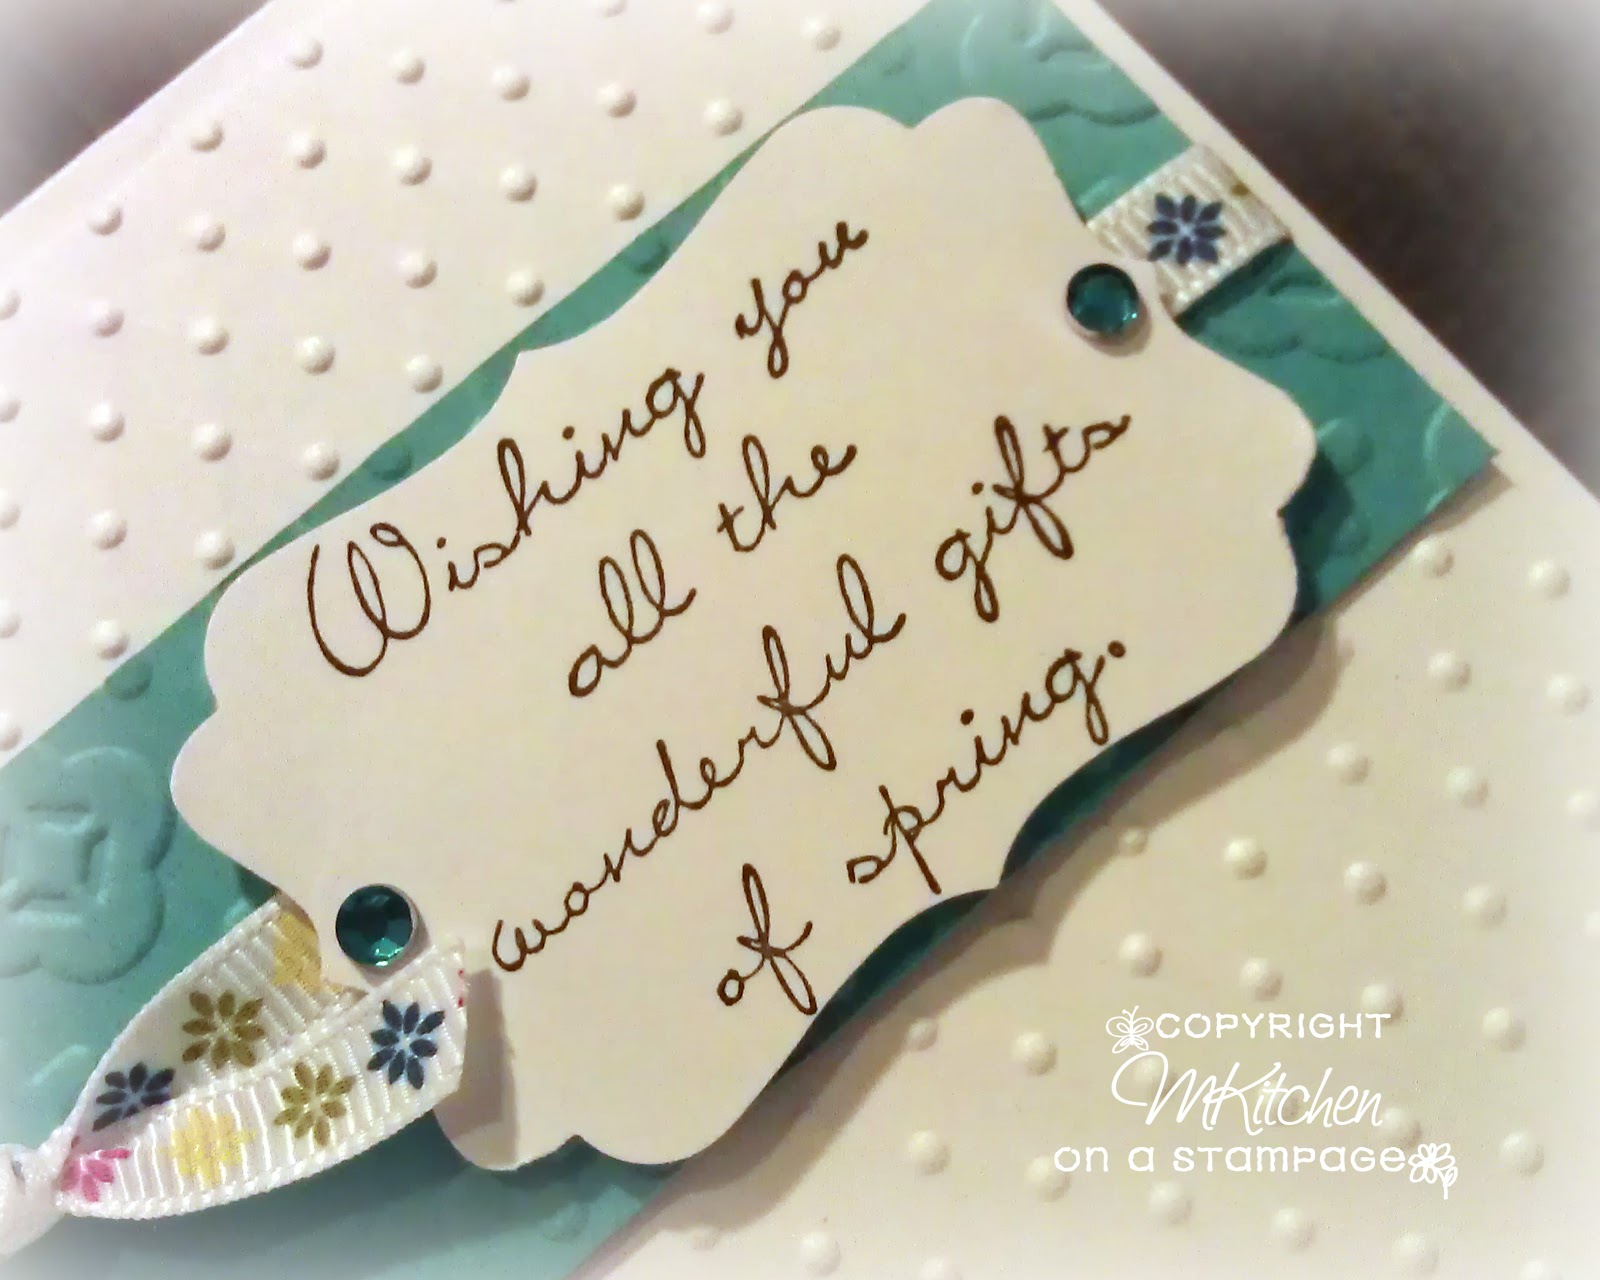 Wishing you
all the
wonderful gifts
of spring.
COPYRIGHT
MKitchen
on a stampage